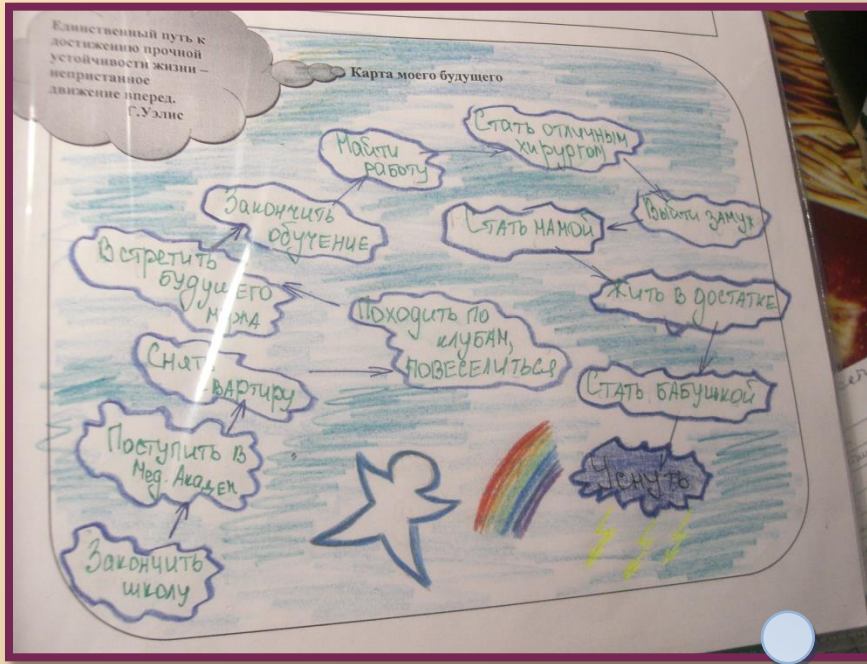 Единственный путь к
достижению прочной
устойчивости жизни –
непристанное
движение вперед.
Г.Уэлис
Карта моего будущего
Закончить
школу
Поступить в
Мед. Академ
Снять
квартиру
Походить по
клубам,
повеселиться
Встретить
будущего
мужа
Закончить
обучение
Найти
работу
Стать отличным
хирургом
Выйти замуж
Стать мамой
Жить в достатке
Стать бабушкой
Уснуть